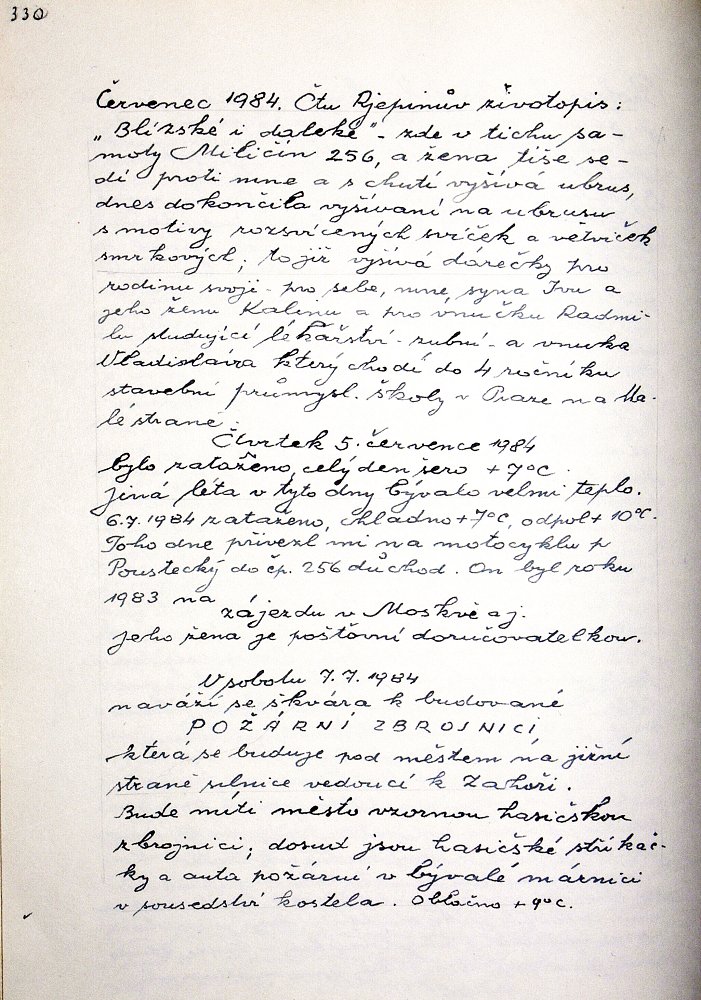 330
Červenec 1984. Čtu Rjepinův životopis:
„Blízské i daleké" - zde v tichu sa-
moty Miličín 256, a žena tiše se-
dí proti mne a s chutí vyšívá ubrus,
dnes dokončila vyšívaní na ubrusu
s motivy rozsvícených svíček a větviček
smrkových; to již vyšívá dárečky pro
rodinu svoji - pro sebe, mne, syna Ivu a
jeho ženu Kalinu a pro vnučku Radmi-
lu studující lékařství - zubní - a vnuka
Vladislava který chodí do 4 ročníku
stavební průmysl. školy v Praze na Ma-
lé straně.
Čtvrtek 5. července 1984
bylo zataženo, celý den šero +7°C.
Jiná léta v tyto dny bývalo velmi teplo.
6.7.1984 zataženo, chladno +7°C, odpol + 10°C.
Toho dne přivezl mi na motocyklu p
Poustecký do čp. 256 důchod. On byl roku
1983 na
zájezdu v Moskvě aj.
Jeho žena je poštovní doručovatelkou.
V sobotu 7.7.1984
naváží se škvára k budované
POŽÁRNÍ ZBROJNICI
která se buduje pod městem na jižní
straně silnice vedoucí k Záhoří.
Bude míti město vzornou hasičskou
zbrojnici; dosud jsou hasičské stříkač-
ky a auta požární v bývalé márnici
v sousedství kostela. Oblačno + 9°C.